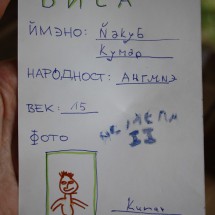 ВИСА
ЙМЭНО: Њакуб
Кумар
НАРОДНОСТ: АНГМИЭ
ВЕК: 15
ФОТО
II
Kumar